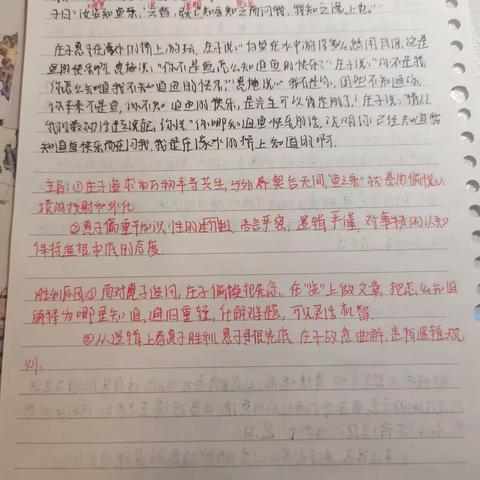 子曰'汝安知鱼乐'云者，既已知吾知之而问我，我知之濠上也。"
庄子惠子在濠水的桥上游玩，庄子说："白鱼在水中游得多么悠闲自得，这是
鱼的快乐啊。惠施说："你不是鱼，怎么知道鱼的快乐？"庄子说："你不是我
你怎么知道我不知道鱼的快乐？"惠施说："我不是你，固然不知道你
你本来不是鱼，你不知道鱼的快乐，是完全可以肯定的了！庄子说："请从
我们最初说起，你说"你哪知道鱼快乐的话，说明你已经知道我
知道鱼快乐而在问我，我是在濠水的桥上知道的啊。
主旨：①庄子追求与万物平等共生，与外界契合无间"鱼之乐"就是因愉悦心
境的投射和外化
②惠子偏重于知识性的逻辑，语言平实，逻辑严谨，对事物的认知
保持追根求底的态度
胜利原因①面对惠子追问，庄子偷换概念，在"安"上做文章，把怎么知道
解释为哪里知道，避旧重轻，化解难题，可以灵活机智
②从逻辑上看惠子胜利，惠子寻根究底，庄子故意曲解，违背逻辑规
则。